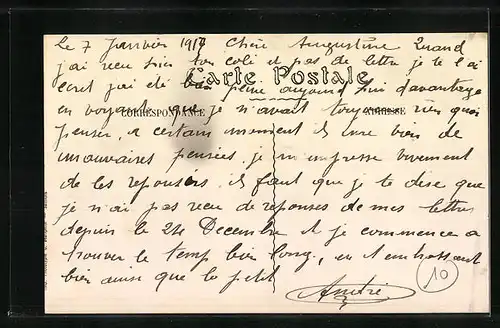 Le 7 Janvier 1917 Chère Augustine Quand
j'ai reçu hier ton coli et pas de lettre je te l'ai
écrit j'ai été bien peiné aujourd'hui davantage
Carte Postale
en voyant que je n'avait toujours rien quoi
CORRESPONDANCE
ADRESSE
penser, a certain moment il me vien de
mauvaises pensées, je m'empresse vivement
de les repousées, il faut que je te dise que
je n'ai pas reçu de réponses de mes lettres
depuis le 24 Décembre et je commence a
trouver le temp bien long, en t'embrassant
bien ainsi que le petit
André
10